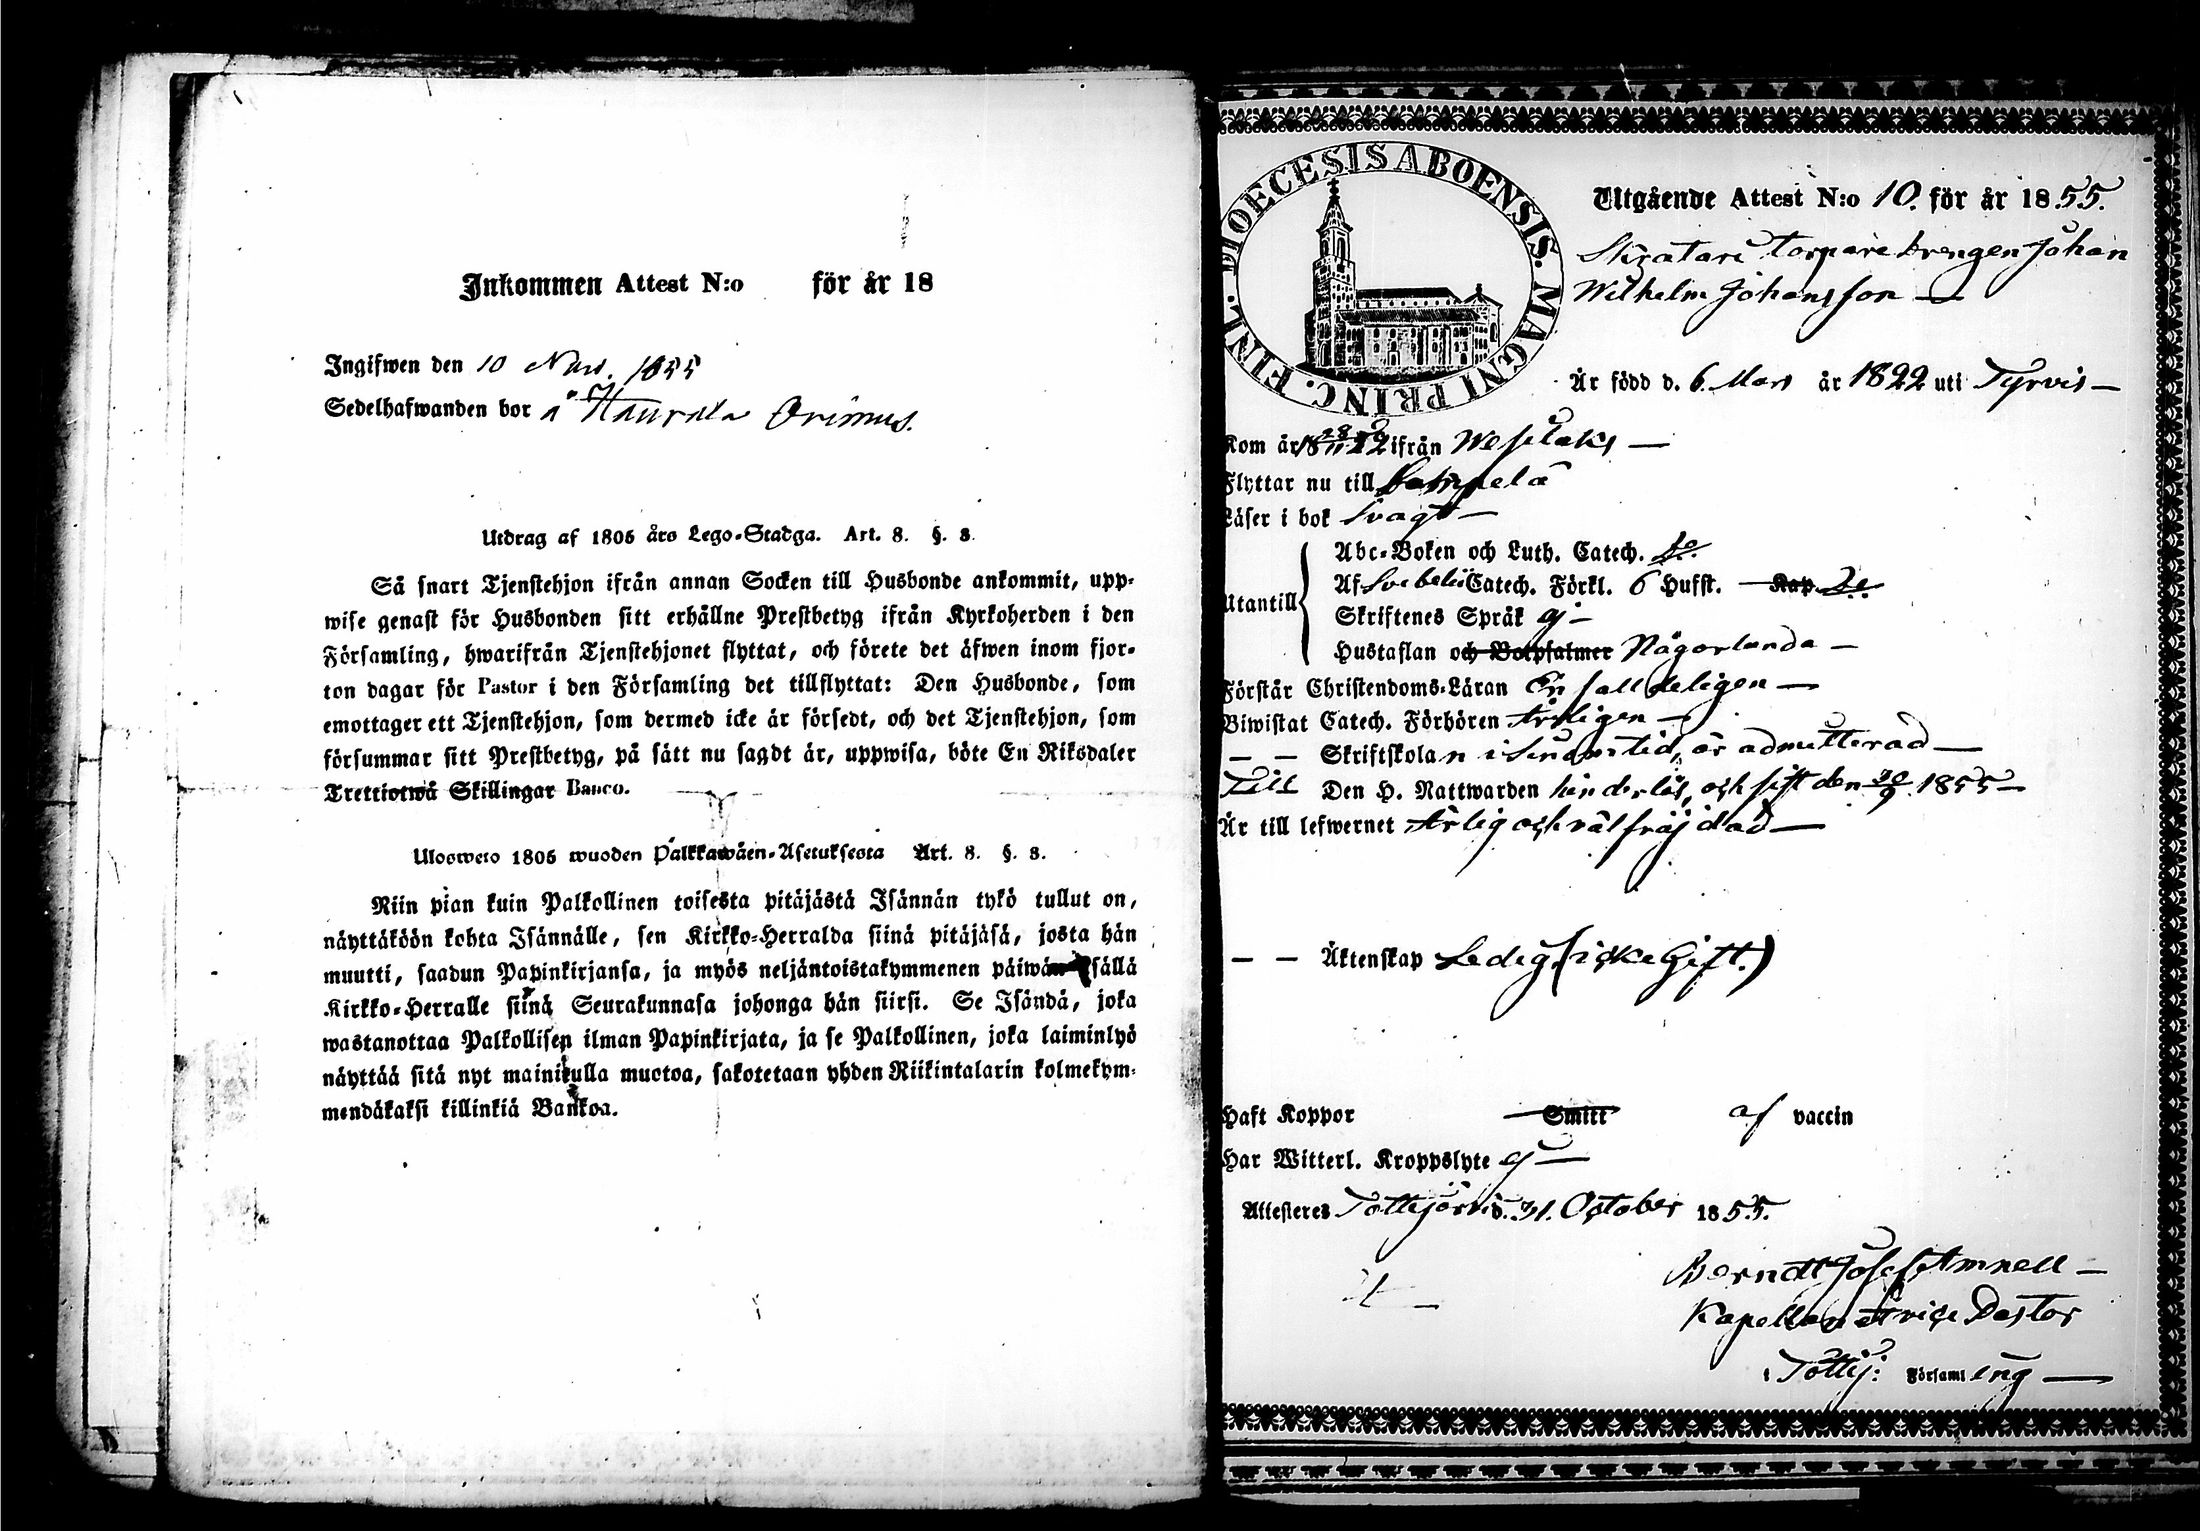 Inkommen Attest N:o för år 18
Ingifwen den 10 Nov. 1855
Sedelhafwanden bor å Haurala Orimus.
Utdrag af 1805 års Lego-Stadga. Art. 8. §. 8.
Så snart Tjenstehjon ifrån annan Socken till Husbonde ankommit, upp-
wise genast för Husbonden sitt erhållne Prestbetyg ifrån Kyrkoherden i den
Församling, hwarifrån Tjenstehjonet flyttat, och förete det äfwen inom fjor-
ton dagar för Pastor i den Församling det tillflyttat: Den Husbonde, som
emottager ett Tjenstehjon, som dermed icke är försedt, och det Tjenstehjon, som
försummar sitt Prestbetyg, på sätt nu sagdt är, uppwisa, böte En Riksdaler
Trettiotwå Skillingar Banco.
Ulosweto 1805 wuoden Palkkawäen-Asetuksesta Art. 8. §. 8.
Niin pian kuin Palkollinen toisesta pitäjästä Isännän tykö tullut on,
näyttäköön kohta Isännälle, sen Kirkko-Herralda siinä pitäjäsä, josta hän
muutti, saadun Papinkirjansa, ja myös neljäntoistakymmenen päiwän sisällä
Kirkko-Herralle siinä Seurakunnasa johonga hän siirsi. Se Isändä, joka
wastanottaa Palkollisen ilman Papinkirjata, ja se Palkollinen, joka laiminlyö
näyttää sitä nyt mainitulla muotoa, sakotetaan yhden Riikintalarin kolmekym-
mendäkaksi killinkiä Bankoa.
DIOECESIS ABOENSIS. MAGNI PRINC. FINL.
Utgående Attest N:o 10. för år 1855.
Skratari torpare drengen Johan
Wilhelm Johansson —
Är född d. 6. Mars år 1822 uti Tyrvis —
Kom år 18 28/11 52 ifrån Wesilaks —
Flyttar nu till Lempelä
Läser i bok svagt —
Utantill
Abc-Boken och Luth. Catech.
Af Svebelii Catech. Förkl. 6 Hufst. Kap
Skriftenes Språk ej —
Hustaflan och Botpsalmer Någorlunda —
Förstår Christendoms-Läran Enfalldeligen —
Biwistat Catech. Förhören Årligen —
— — Skriftskolan i sinom tid, är admitterad —
Till Den H. Nattwarden hinderlös, och sist den 30/9 1855 —
Är till lefwernet Ärlig och välfräjdad —
— — Äktenskap Ledig (icke Gift.)
Haft Koppor Smitt af vaccin
Har Witterl. Kroppslyte ej —
Attesteres Tottejärvi d. 31. October 1855.
Berndt Josef Amnell —
Kapellan et vice Pastor
i Tottij: Församling —